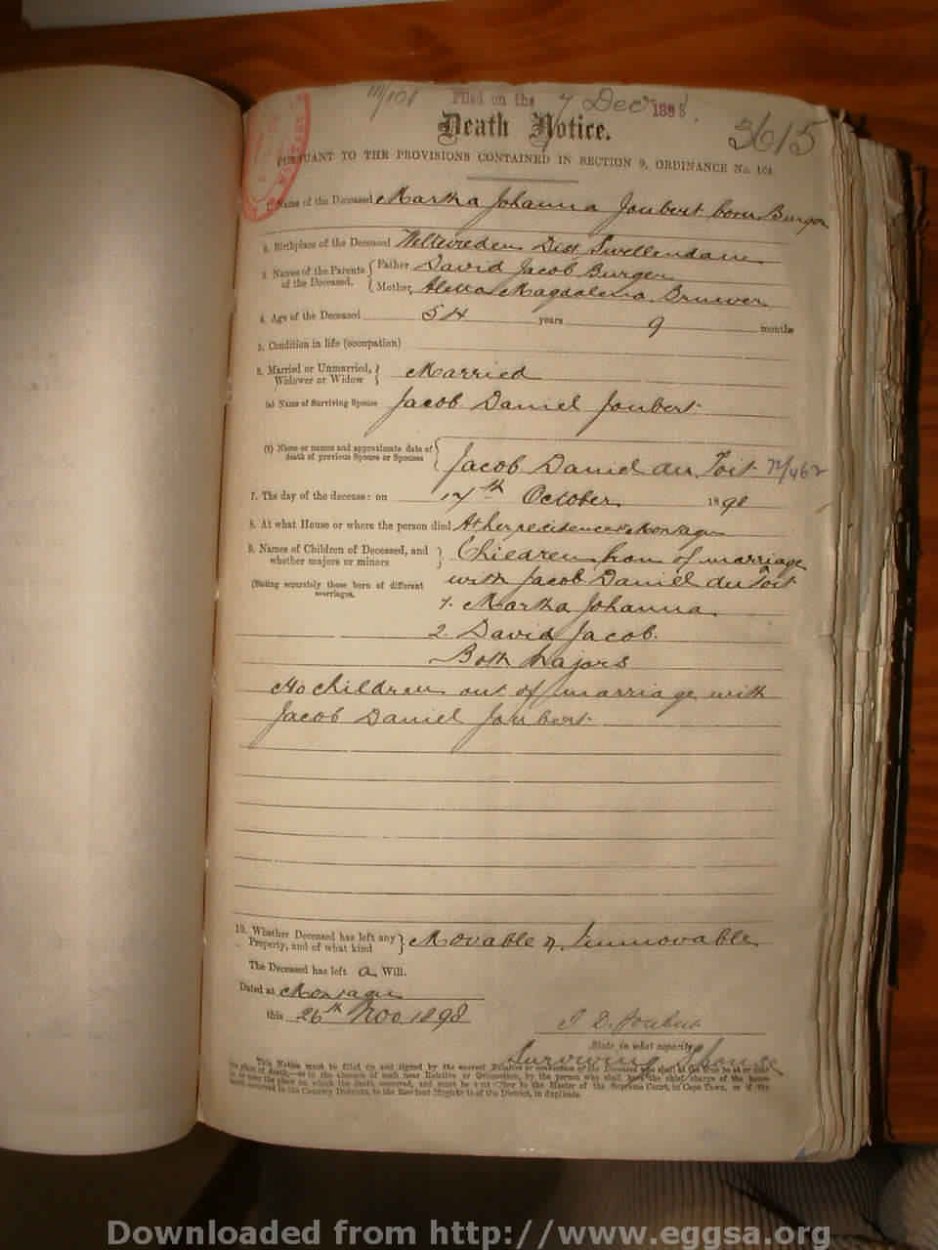 Filed on the 7 Dec 1898.
3615
Death Notice.
PURSUANT TO THE PROVISIONS CONTAINED IN SECTION 9, ORDINANCE No. 104
1. Name of the Deceased Martha Johanna Joubert born Burger
2. Birthplace of the Deceased Weltevreden Dist Swellendam
3. Names of the Parents of the Deceased. Father David Jacob Burger
Mother Aletta Magdalena Bruwer
4. Age of the Deceased 54 years 9 months
5. Condition in life (occupation)
6. Married or Unmarried, Widower or Widow Married
(a) Name of Surviving Spouse Jacob Daniel Joubert
(b) Name or names and approximate date of death of previous Spouse or Spouses Jacob Daniel du Toit 72/462
7. The day of the decease: on 17th October 1898
8. At what House or where the person died At her residence Montagu
9. Names of Children of Deceased, and whether majors or minors Children from of marriage
(Stating separately those born of different marriages. with Jacob Daniel du Toit
1. Martha Johanna
2. David Jacob.
Both Majors
No children out of marriage with
Jacob Daniel Joubert
10. Whether Deceased has left any Property, and of what kind Movable & Immovable
The Deceased has left a Will.
Dated at Montagu
this 26th Nov 1898
J. D. Joubert
State in what capacity
Surviving Spouse
Downloaded from http://www.eggsa.org